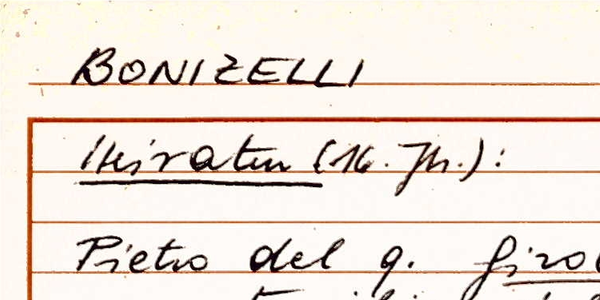 BONIZELLI
Heiraten (16. Jh.):
Pietro del q.